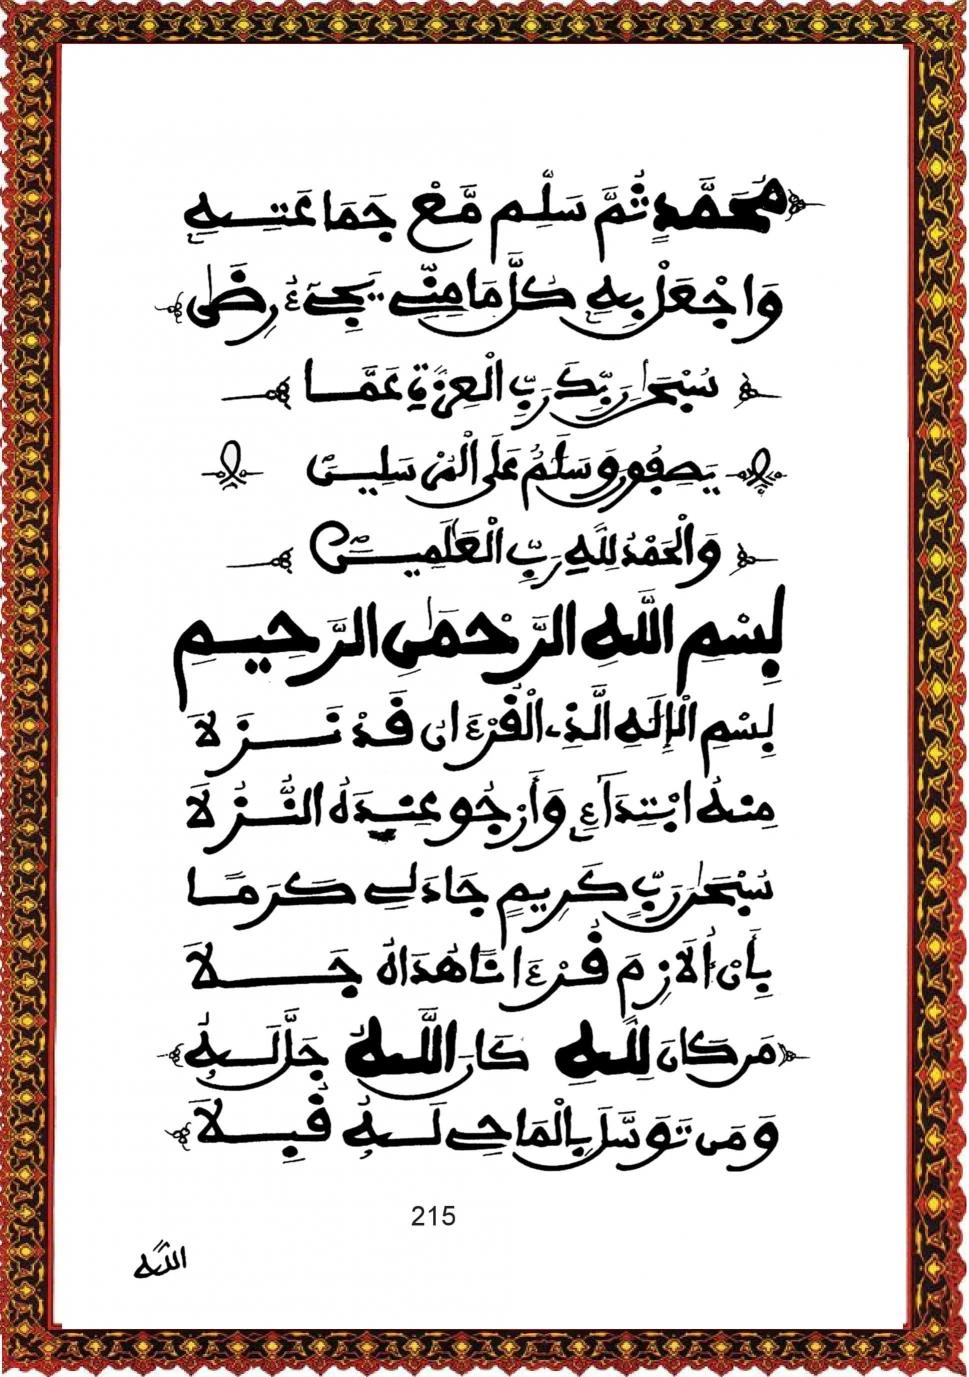 مُحَمَّدٍ ثُمَّ سَلِّم مَّعْ جَمَاعَتِهِ
وَاجْعَلْ بِهِ كُلَّ مَا مِنِّے يَجِےءُ رِضَى
سُبْحَٰنَ رَبِّكَ رَبِّ الْعِزَّةِ عَمَّا
يَصِفُونَ وَسَلَٰمٌ عَلَى الْمُرْسَلِينَ
وَالْحَمْدُ لِلَّهِ رَبِّ الْعَٰلَمِينَ
بِسْمِ اللَّهِ الرَّحْمَٰنِ الرَّحِيمِ
بِسْمِ الْإِلَٰهِ الَّذِے الْقُرْءَانَ قَدْ نَزَلَا
مِنْهُ ابْتِدَآءً وَأَرْجُو عِنْدَهُ النُّزُلَا
سُبْحَٰنَ رَبٍّ كَرِيمٍ جَادَ لِے كَرَمًا
بِأَنْ أُلَازِمَ قُرْءَانًا هُدَاهُ جَلَا
مَن كَانَ لِلَّهِ كَانَ اللَّهُ جَلَّ لَهُ
وَمَن تَوَسَّلَ بِالْمَاحِے لَهُ قَبِلَا
215
اللَّه